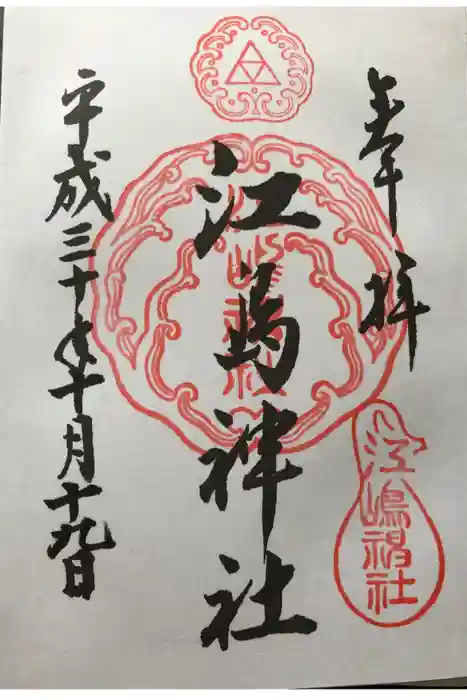 奉拝
江島神社
江嶋神社
平成三十年十月十九日